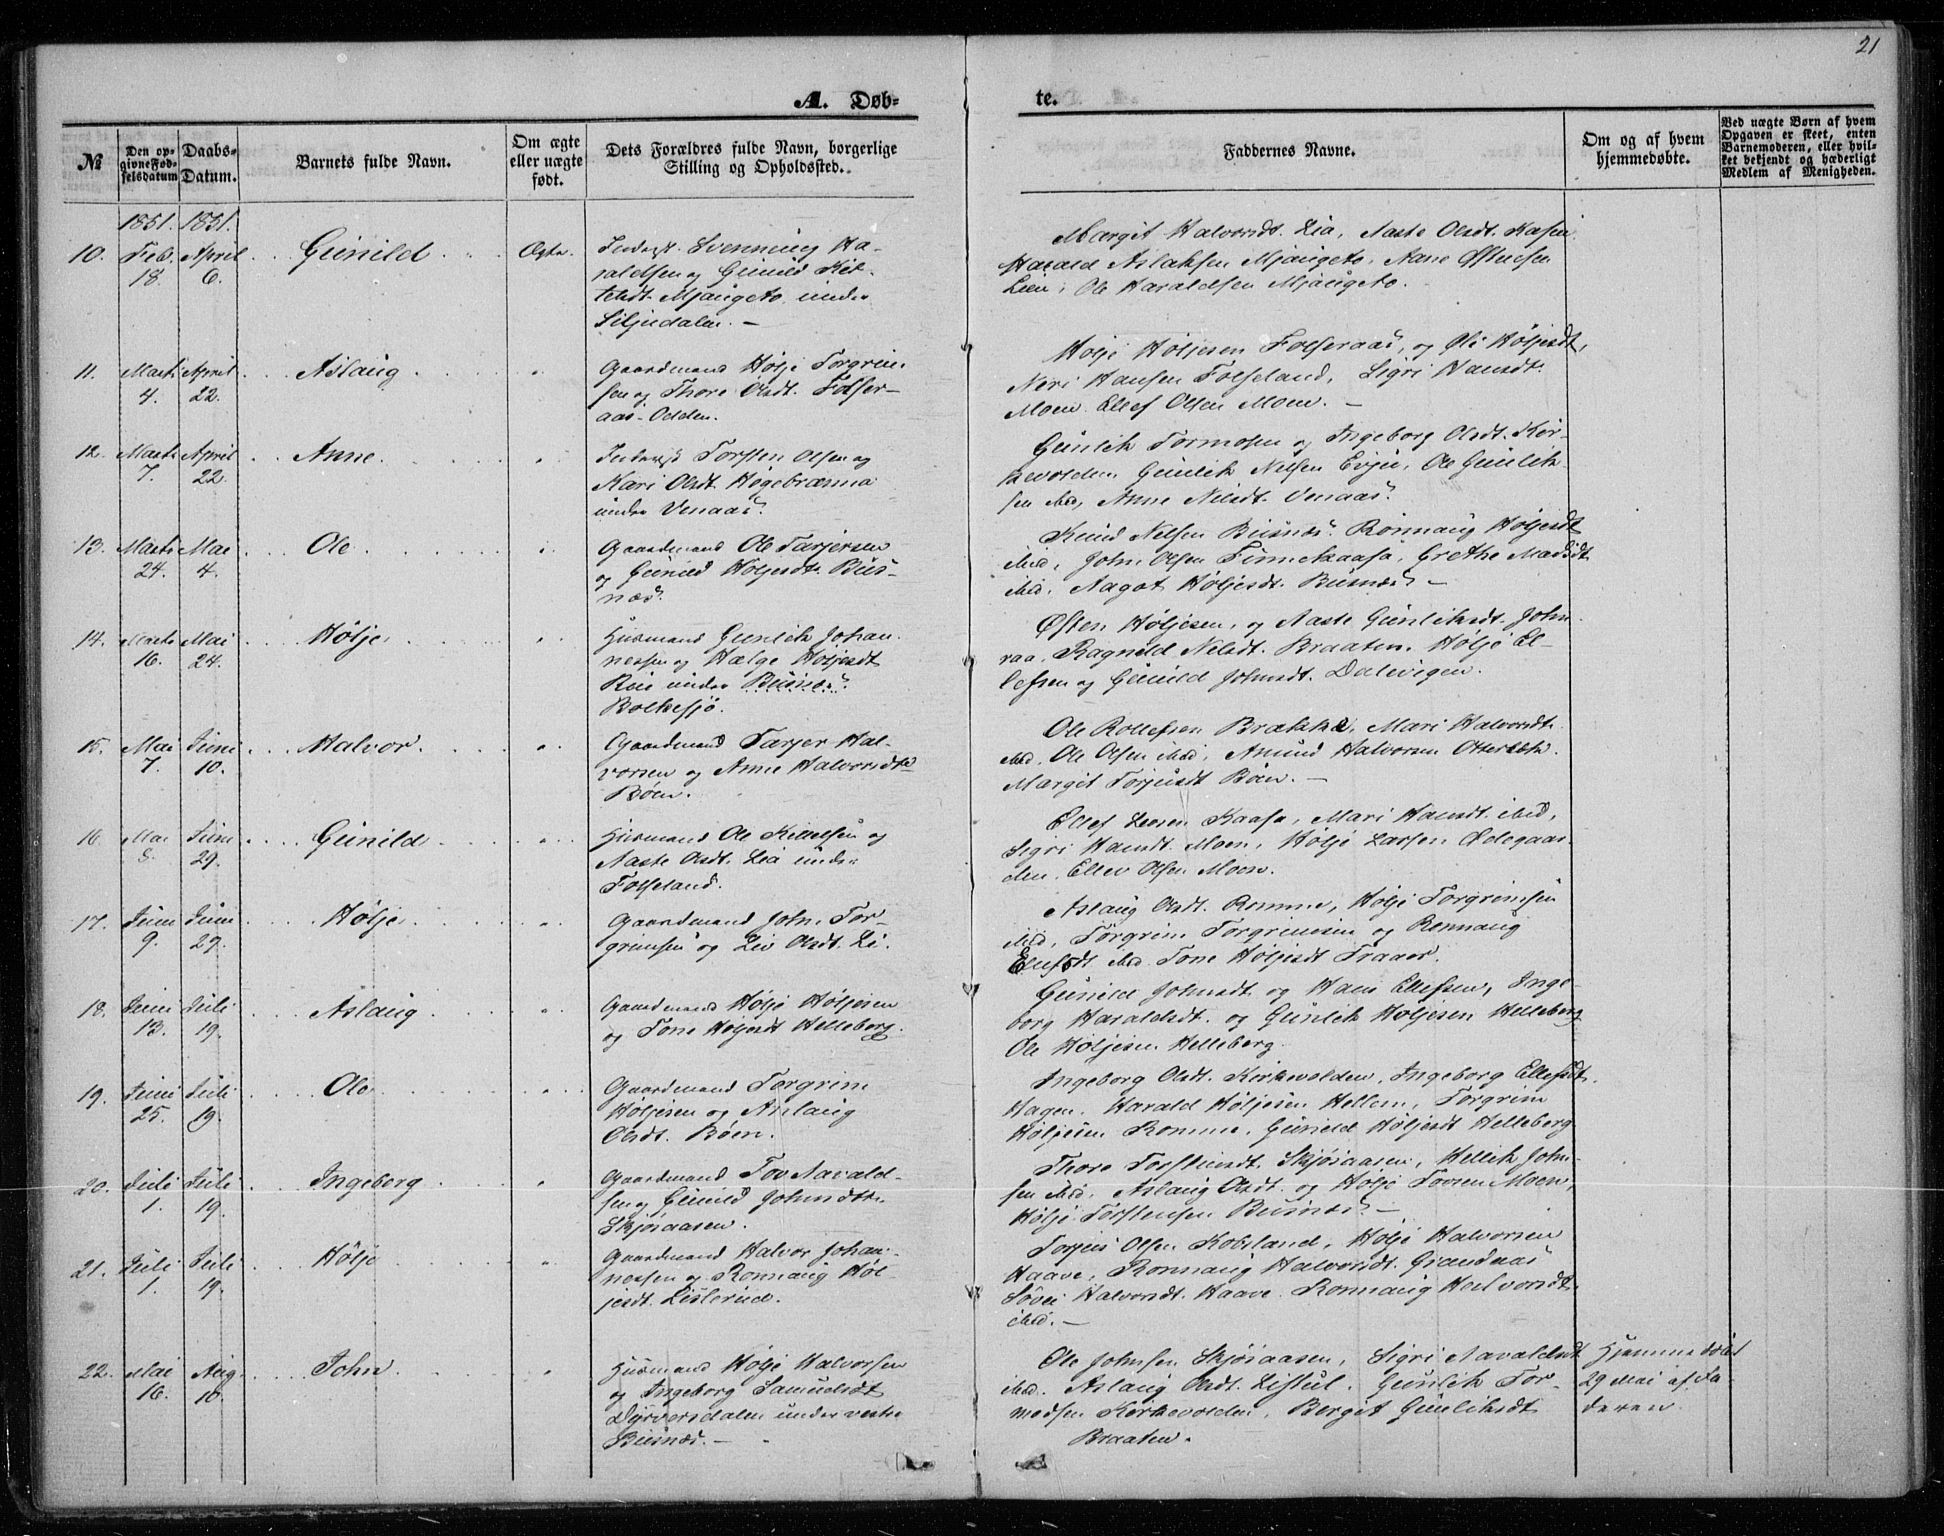 21
A. Døb-
te.
№
Den op-
givne Fød-
selsdatum
Daabs-
Datum.
Barnets fulde Navn.
Om ægte
eller uægte
født.
Dets Forældres fulde Navn, borgerlige
Stilling og Opholdssted.
Faddernes Navne.
Om og af hvem
hjemmedøbte.
Ved uægte Børn af hvem
Opgaven er skeet, enten
Barnemoderen, eller hvil-
ket bekjendt og hæderligt
Medlem af Menigheden.
1851. 1851.
10. Feb. 18. April 6. Gunild Ægte.
Inderst Svenning Ha-
raldsen og Gunild Kit-
telsdt. Mjaugeto under
Siljudalen. —
Margit Halvorsdt. Lia, Aaste Olsdt. Kasin
Harald Aslaksen Mjaugeto, Anne Østensen
Lien, Ole Haraldsen Mjaugeto.
11. Marts 4. April 22. Aslaug "
Gaardmand Hølje Torgrim-
sen og Thore Olsdt. Folser-
aas-Odden.
Hølje Høljesen Folseraas, og Øli Høljesdt,
Neri Hansen Folseland, Sigri Hansdt.
Moen. Ellef Olsen Moen. —
12. Marts 7. April 22. Anne "
Inderst Torsten Olsen og
Kari Olsdt. Høgebrænna
under Venaas.
Gunlik Tormosen og Ingeborg Olsdt. Kir-
kevolden Gunlik Nelsen Evju, Ole Gunlik-
sen ibid, Anne Nilsdt. Venaas.
13. Marts 24. Mai 4. Ole "
Gaardmand Ole Tarjersen
og Gunild Høljesdt. Bus-
næs.
Knud Nelsen Busnæs. Rønnaug Høljesdt
ibid, John Olsen Finnekaasa, Grethe Madsdt.
ibid, Aagot Høljesdt. Busnæs —
14. Marts 16. Mai 24. Hølje "
Husmand Gunlik Johan-
nessen og Hælge Høljesdt
Rue under Busnæs.
Bolkesjø.
Østen Høljesen, og Aaste Gunliksdt. John-
raa. Ragnild Nelsdt. Braaten. Hølje El-
lefsen og Gunild Johnsdt. Dalevigen.
15. Mai 7. Juni 10. Halvor "
Gaardmand Tarjer Hal-
vorsen og Anne Halvorsdt.
Bøen.
Ole Rollefsen Brække, Mari Halvorsdt.
ibid. Ole Olsen ibid, Amund Halvorsen Otterholt.
Margit Torjusdt Bøen. —
16. Mai 8. Juni 29. Gunild "
Husmand Ole Kittelsen og
Aaste Olsdt. Lia under
Folseland.
Ellef Leosen Kaasa, Mari Hansdt. ibid,
Sigri Hansdt. Moen, Hølje Larsen Ødegaar-
den. Ellev Olsen Moen.
17. Juni 9. Juni 29. Hølje "
Gaardmand John Tor-
grimsen og Liv Olsdt. Li.
Aslaug Olsdt. Romme, Hølje Torgrimsen
ibid, Torgrim Torgrimsen og Rønnaug
Ellefsdt ibid. Tone Høljesdt Traaer.
18. Juni 13. Juli 19. Aslaug "
Gaardmand Hølje Høljesen
og Tone Høljesdt Helleberg.
Gunild Johnsdt og Hans Ellefsen, Inge-
borg Haraldsdt. og Gunlik Høljesen Helleberg
Ole Høljesen Helleberg.
19. Juni 25. Juli 19. Ole "
Gaardmand Torgrim
Høljesen og Aslaug
Olsdt. Bøen.
Ingeborg Olsdt. Kirkevolden, Ingeborg Ellefsdt.
Hagen. Harald Høljesen Hellem, Torgrim
Høljesen Romme, Gunild Høljesdt Helleberg
20. Juli 1. Juli 19. Ingeborg "
Gaardmand Tov Navald-
sen og Gunild Johnsdt.
Skjøsaasen.
Thore Torstensdt. Skjøsaasen, Hellik John-
sen ibid. Aslaug Olsdt. og Hølje Tovsen Moen,
Hølje Torstensen Busnæs —
21. Juli 1. Juli 19. Hølje "
Gaardmand Halvor Johan-
nessen og Rønnaug Høl-
jesdt. Lislerud.
Torjus Olsen Kobsland, Hølje Halvorsen
Haave, Rønnaug Halvorsdt. Grandnæs
Søvei Halvorsdt. Haave. Rønnaug Halvorsdt.
ibid. —
22. Mai 16. Aug. 10. John "
Husmand Hølje Halvorsen
og Ingeborg Samuelsdt
Dyrversdalen under vestre
Busnæs. —
Ole Johnsen Skjøsaasen, Sigri Navaldsdt
ibid. Aslaug Olsdt. Listul. Gunlik Tor-
modsen Kirkevolden, Bergit Gunliksdt
Braaten.
Hjemmedøbt
29 Mai af Fa-
deren.